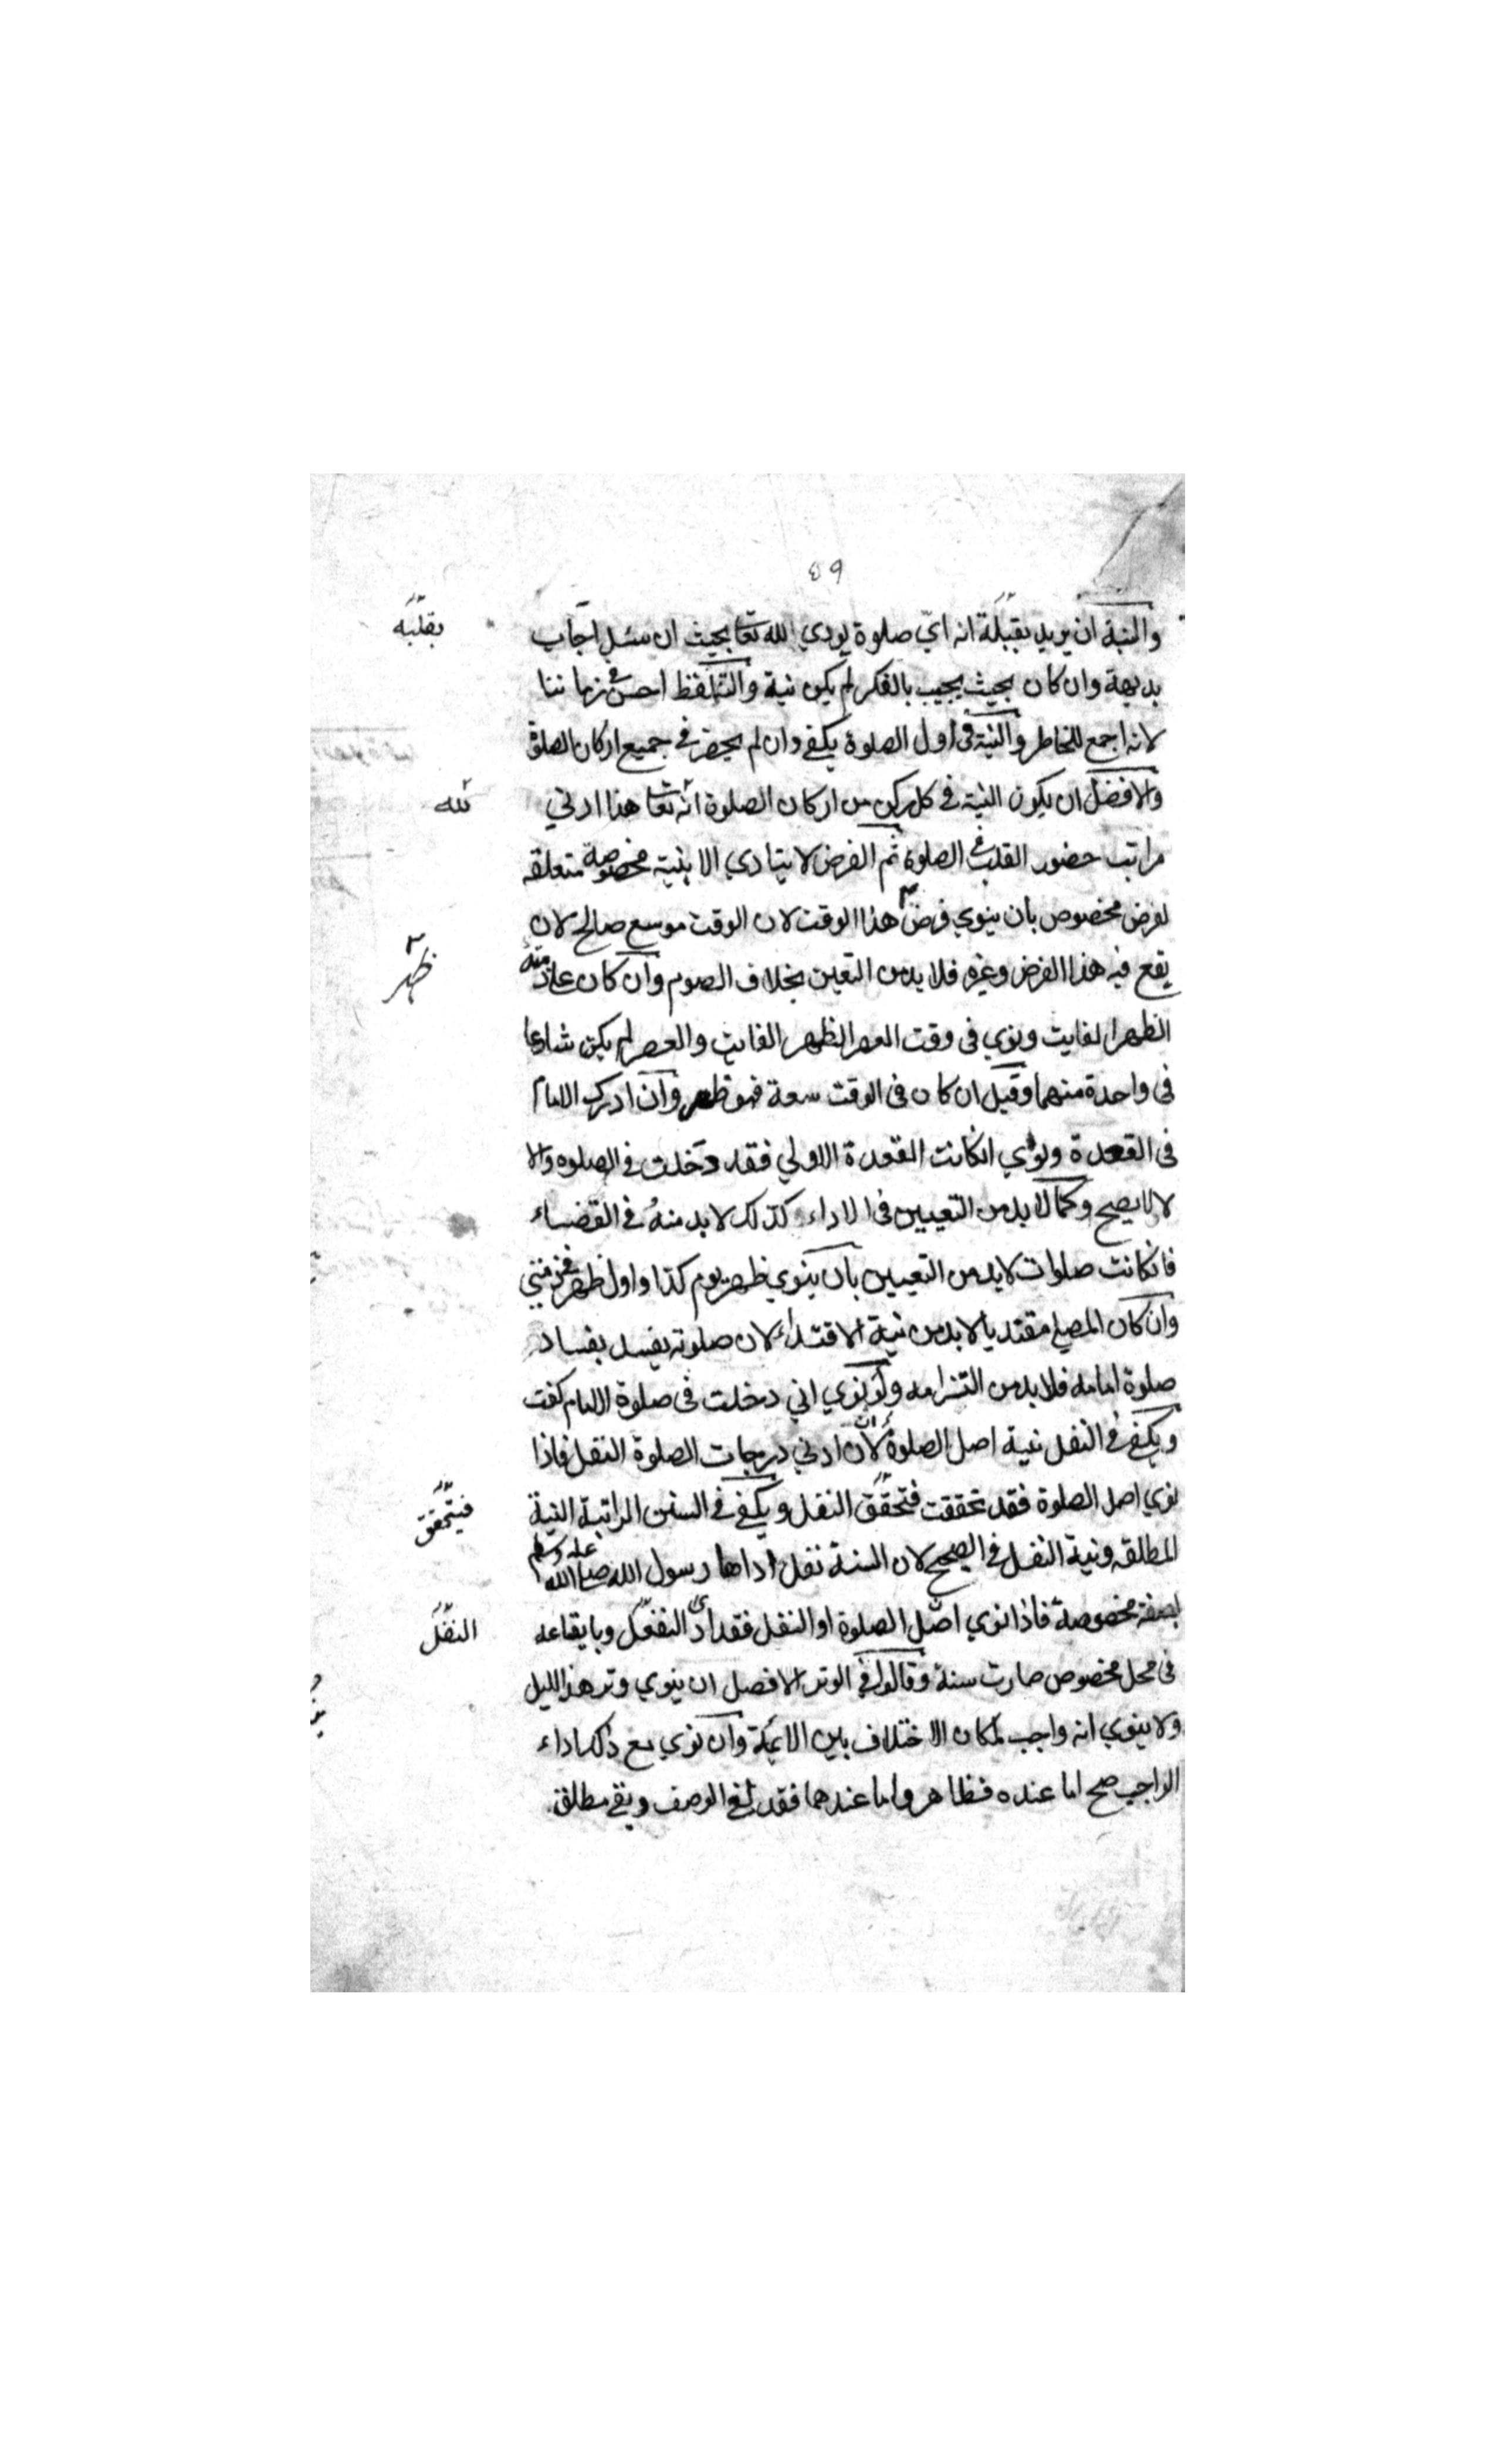 ٤٩
والنية ان يريد بقبلة انه اي صلوة يودي لله تعا بحيث ان سئل اجاب
بقلبه
بديهة وان كان بحيث يجيب بالفكر لم يكن نية والتلفظ احسن في زماننا
لانه اجمع للخاطر والنية في اول الصلوة يكفي وان لم يحضر في جميع اركان الصلوة
والافضل ان يكون النية في كل ركن من اركان الصلوة انه تعا هذا ادني
لله
مراتب حضور القلب في الصلوة ثم الفرض لا يتادي الا بنية مخصوصة متعلقة
لفرض مخصوص بان ينوي فرض هذا الوقت لان الوقت موسع صالح لان
ظهر
يقع فيه هذا الفرض وغيره فلا بد من التعين بخلاف الصوم وان كان عاد منه
الظهر الفايت ونوي في وقت العصر الظهر الفايت والعصر لم يكن شارعا
في واحدة منهما وقيل ان كان في الوقت سعة فهو ظهر وان ادرك الامام
في القعدة ونوي انكانت القعدة الاولي فقد دخلت في الصلوه والا
لا لا يصح وكما لا بد من التعيين في الاداء كذلك لا بد منه في القضاء
فانكانت صلوات لا بد من التعيين بان ينوي ظهر يوم كذا واول ظهر
وان كان المصلي مقتديا لا بد من نية الاقتداء لان صلوته يفسد بفساد
صلوة امامه فلا بد من التزامه ولو نوي اني دخلت في صلوة الامام كفت
ويكفي في النفل نية اصل الصلوة لان ادني درجات الصلوة النفل فاذا
نوي اصل الصلوة فقد تحققت فتحقق النفل ويكفي في السنن الراتبة النية
فيتحقق
المطلقه ونية النفل في الصحيح لان السنة نفل اداها رسول الله صلى الله عليه وسلم
بصفة مخصوصة فاذا نوي اصل الصلوة او النفل فقد ادى النفل وبايقاعه
النفل
في محل مخصوص صارت سنة وقالوا في الوتر الافصل ان ينوي وتر هذا الليل
ولا ينوي انه واجب لمكان الاختلاف بين الائمة وان نوي مع ذلك اداء
الواجب صح اما عنده فظاهر واما عندهما فقد لغي الوصف وبقي مطلق